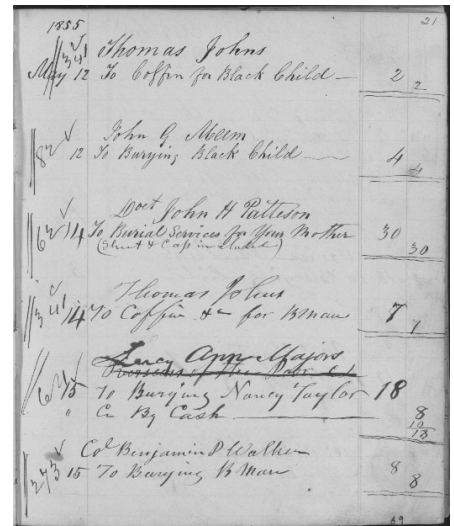 21
1855
341 Thomas Johns
May 12 To Coffin for Black Child — 2
2
82 John G Meem
12 To Burying Black Child — 4
4
62 Doct John H Patteson
14 To Burial Services for Your Mother 30
(Shroud & Cap included) 30
341 Thomas Johns
14 To Coffin &c for B Man 7
7
Lucy Ann Majors
Overseers of the Poor
15 To Burying Nancy Taylor 18
" Cr By Cash — 8
10
18
Col Benjamin P Walker
273 15 To Burying B Man 8
8
69